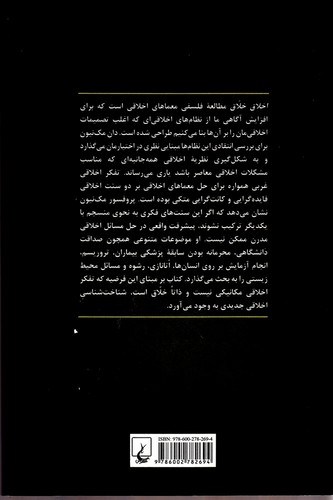 اخلاق خلّاق مطالعهٔ فلسفی معماهای اخلاقی است که برای
افزایش آگاهی ما از نظام‌های اخلاقی‌ای که اغلب تصمیمات
اخلاقی‌مان را بر آن‌ها بنا می‌کنیم طراحی شده است. دان مک‌نیون
برای بررسی انتقادی این نظام‌ها مبنایی نظری در اختیارمان می‌گذارد
و به شکل‌گیری نظریهٔ اخلاقی همه‌جانبه‌ای که مناسب
مشکلات اخلاقی معاصر باشد یاری می‌رساند. تفکر اخلاقی
غربی همواره برای حل معماهای اخلاقی بر دو سنت اخلاقی
فایده‌گرایی و کانت‌گرایی متکی بوده است. پروفسور مک‌نیون
نشان می‌دهد که اگر این سنت‌های فکری به نحوی منسجم با
یکدیگر ترکیب نشوند، پیشرفت واقعی در حل مسائل اخلاقی
مدرن ممکن نیست. او موضوعات متنوعی همچون صداقت
دانشگاهی، محرمانه بودن سابقهٔ پزشکی بیماران، تروریسم،
انجام آزمایش بر روی انسان‌ها، اُتانازی، رشوه و مسائل محیط
زیستی را به بحث می‌گذارد. کتاب بر مبنای این فرضیه که تفکر
اخلاقی مکانیکی نیست و ذاتاً خلّاق است، شناخت‌شناسی
اخلاقی جدیدی به وجود می‌آورد.
ISBN: 978-600-278-269-4
9 786002 782694